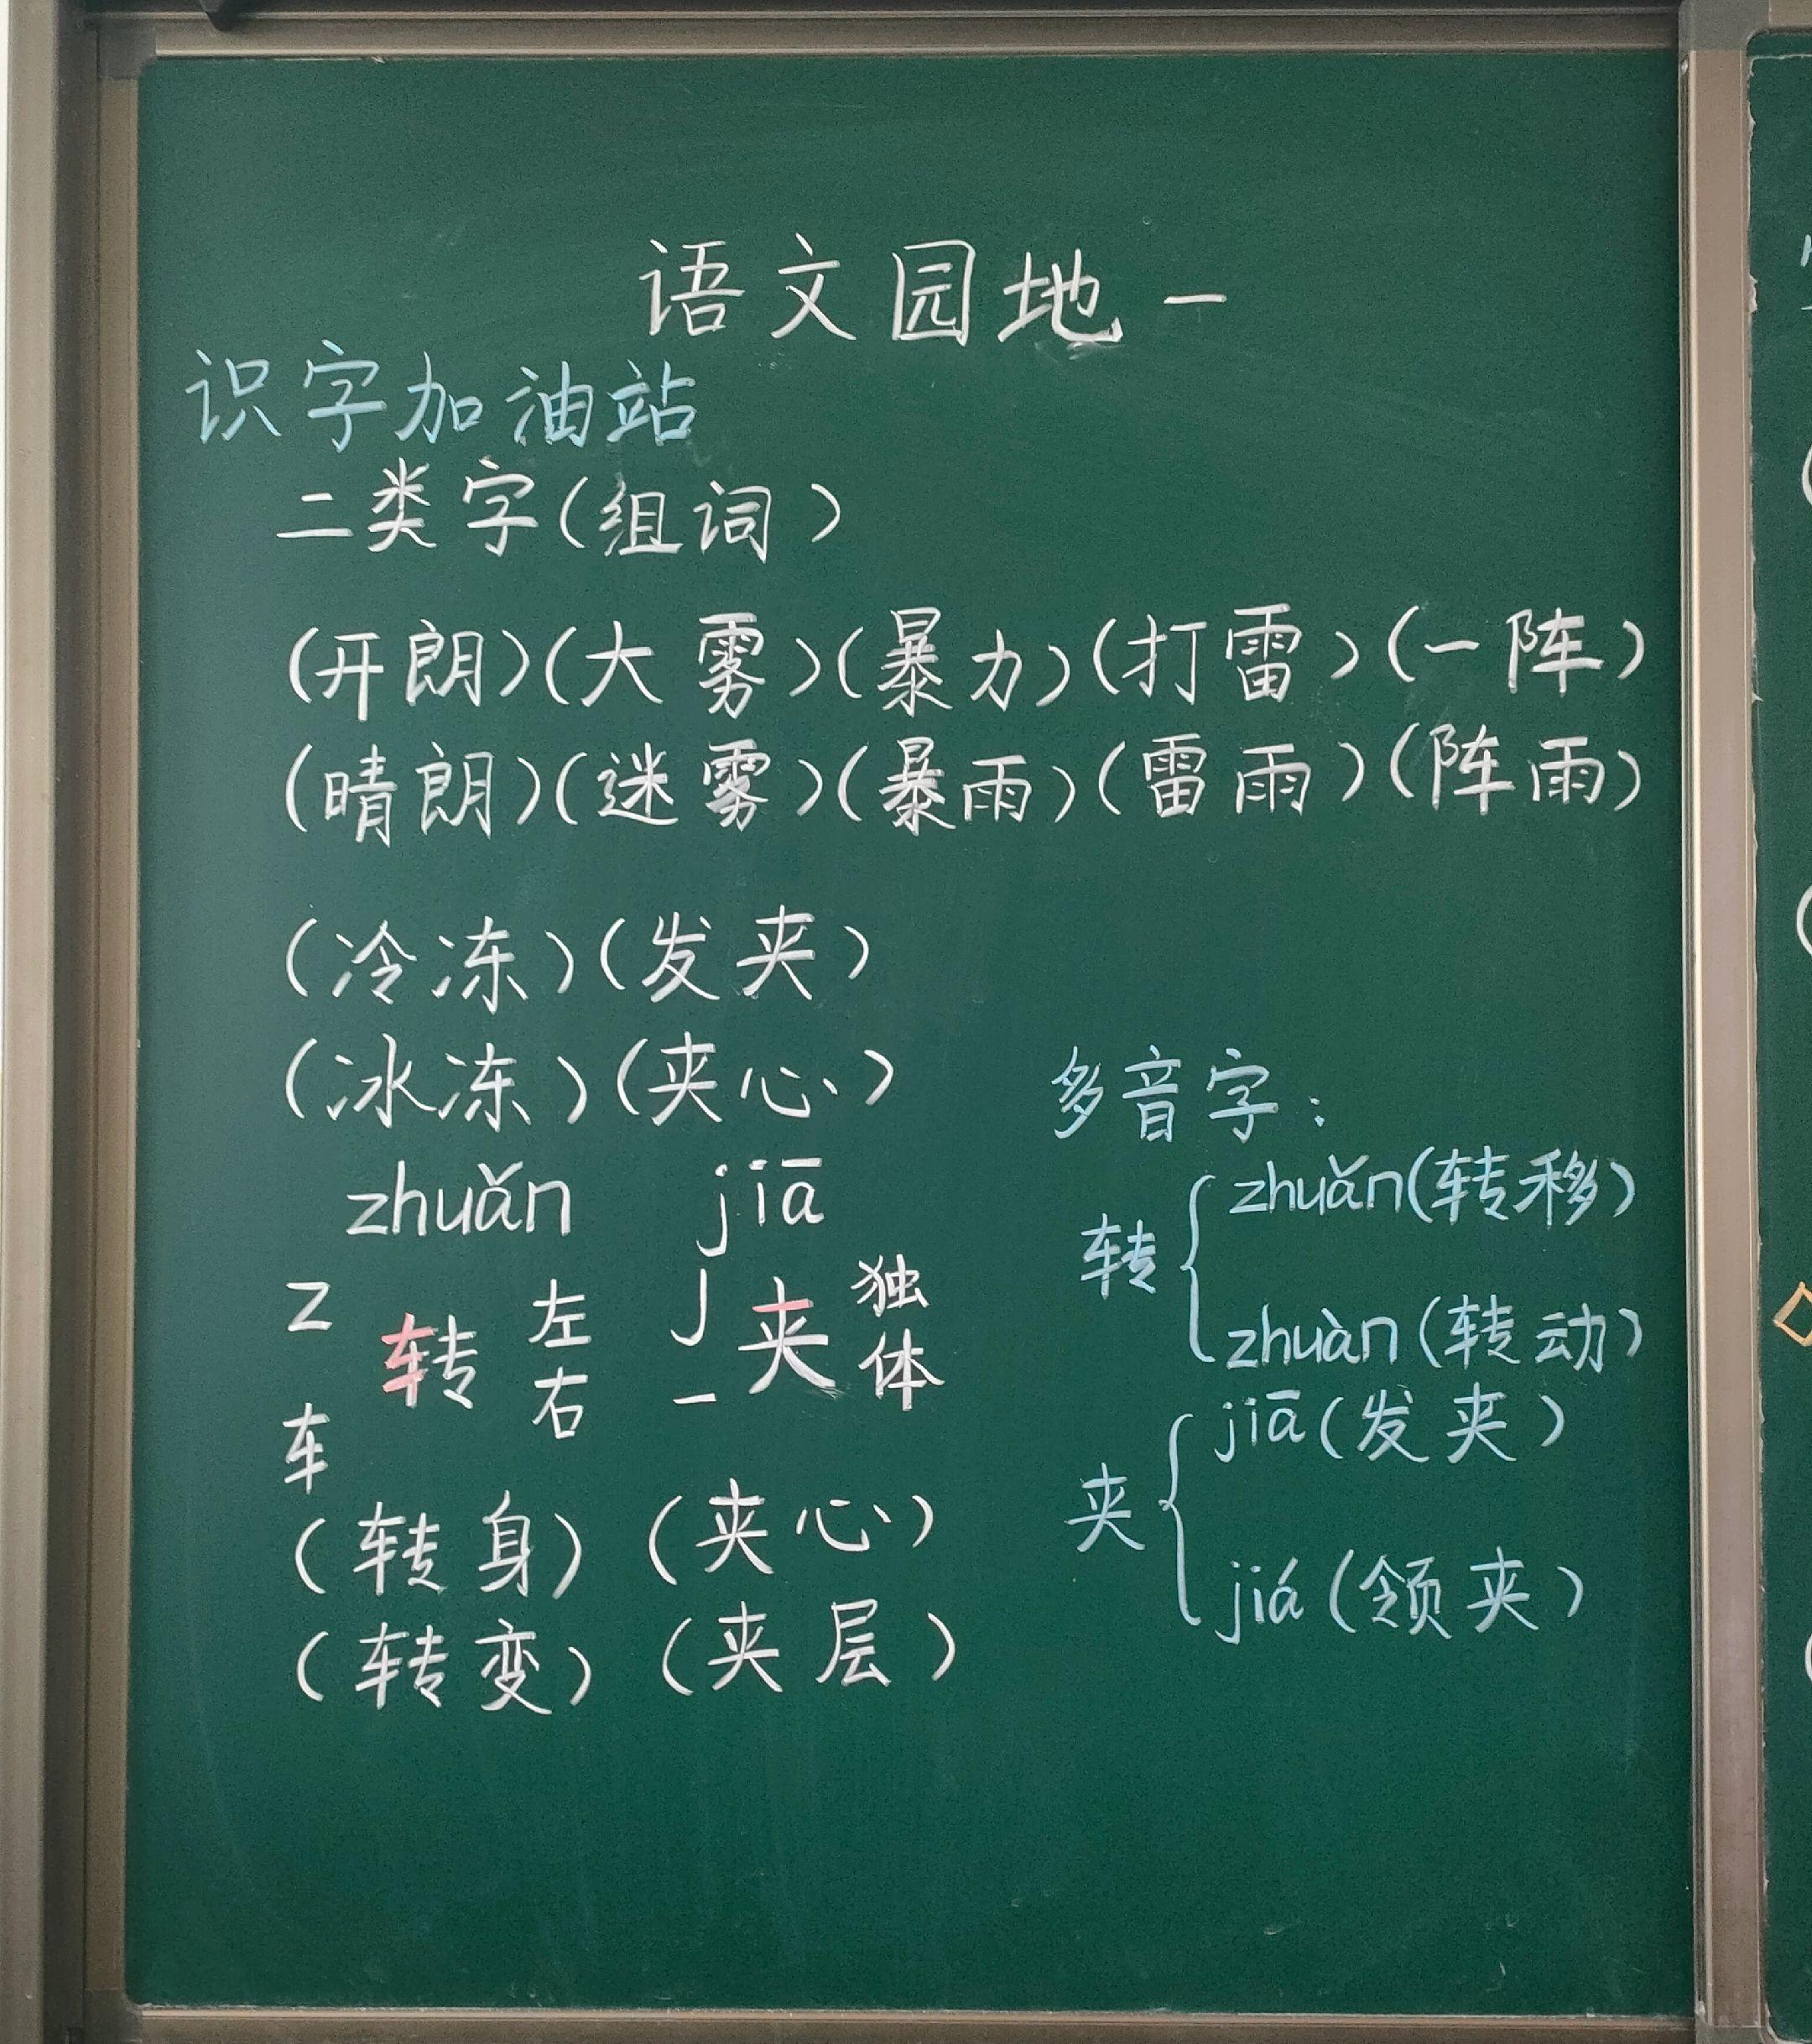 语文园地一
识字加油站
二类字(组词)
(开朗)(大雾)(暴力)(打雷)(一阵)
(晴朗)(迷雾)(暴雨)(雷雨)(阵雨)
(冷冻)(发夹)
(冰冻)(夹心)
zhuǎn jiā
Z 转 左右 J 夹 独体
车 一
(转身)(夹心)
(转变)(夹层)
多音字:
转 { zhuǎn(转移)
zhuàn(转动)
夹 { jiā(发夹)
jiá(领夹)